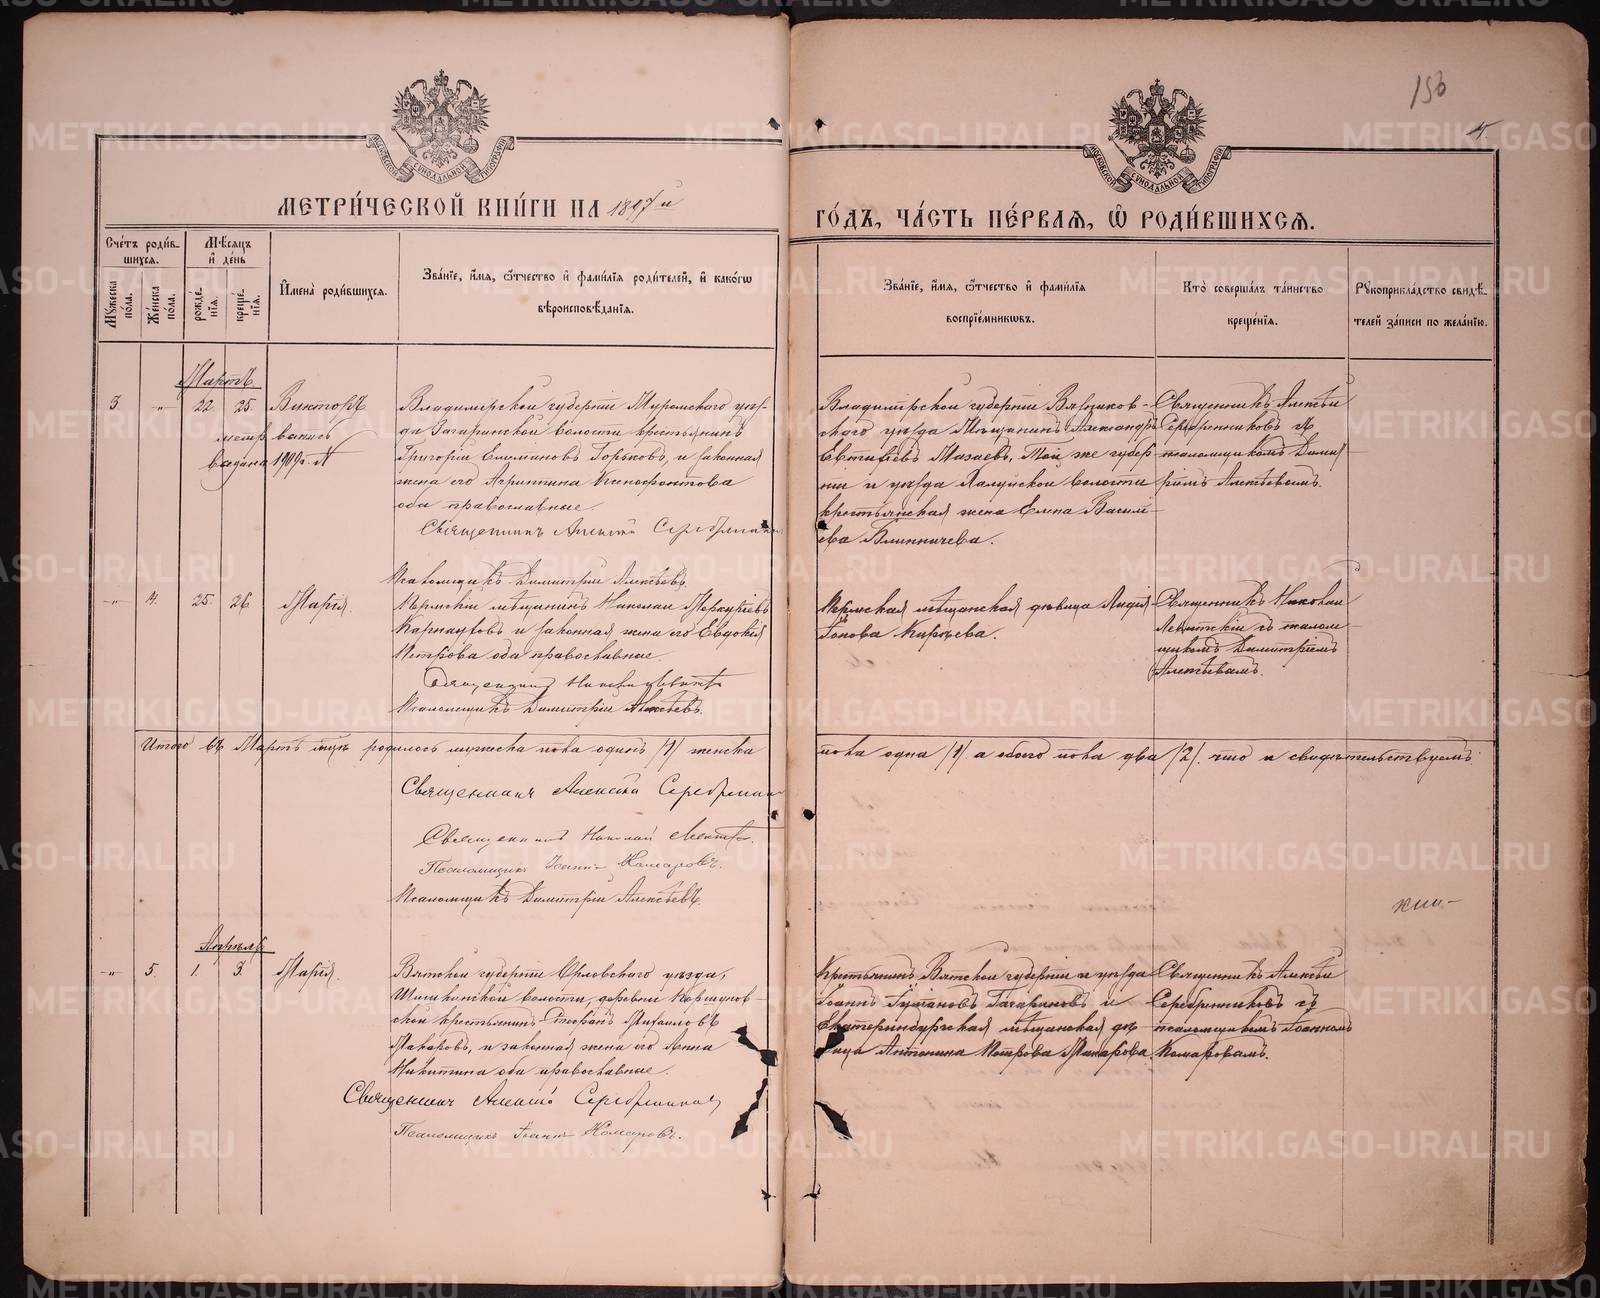 156
4.
МОСКОВСКОЙ СУНОДАЛЬНОЙ ТИПОГРАФІИ
МОСКОВСКОЙ СУНОДАЛЬНОЙ ТИПОГРАФІИ
МЕТРИ́ЧЕСКОЙ КНИ́ГИ НА 1897й
ГО́ДЪ, ЧА́СТЬ ПЕ́РВАЯ, Ѡ҆ РОДИ́ВШИХСЯ.
Сче́тъ роди́вшихся.
Му́жеска по́ла.
Же́нска по́ла.
Мѣ́сяцъ и҆ де́нь
рожде́нїя.
креще́нїя.
И҆мена̀ роди́вшихся.
Зва́нїе, и҆́мя, ѻ҆́тчество и҆ фами́лїя роди́телей, и҆ како́гѡ
вѣроисповѣ́данїя.
Зва́нїе, и҆́мя, ѻ҆́тчество и҆ фами́лїя
воспрїе́мникѡвъ.
Кто̀ соверша́лъ та́инство
креще́нїя.
Рꙋкоприкла́дство свидѣ́-
телей за́писи по жела́нїю.
Мартъ
3 „ 22. 25. Викторъ
выдана 1909 г.
Владимірской губерніи Муромскаго уѣз-
да Загаринской волости крестьянинъ
Григорій Горьковъ, и законная
жена его Агриппина Ксенофонтова
оба православные.
Священникъ Алексій Серебренников
Псаломщикъ Димитрій Алексѣевъ.
Владимірской губерніи Вязников-
скаго уѣзда Мѣщанинъ Александръ
Мазаевъ. Той же губер
ніи и уѣзда Холуйской волости
крестьянская жена Елена Василі-
ева
Священникъ Алексѣй
Серебренниковъ съ
псаломщикомъ Димит
ріемъ Алексѣевымъ.
„ 4. 25. 26. Марія.
Пермскій мѣщанинъ Николай Меркурьевъ
и законная жена его Евдокія
Петрова оба православные.
Священникъ Николай
Псаломщикъ Димитрій Алексѣевъ.
Пермская мѣщанская дѣвица Лидія
Іонова Кирѣева.
Священникъ Николай
Левитскій съ псалом
щикомъ Димитріемъ
Алексѣевымъ.
Итого въ Мартѣ мцѣ родилось мужеска пола одинъ /1/ женска
пола одна /1/ а обоего пола два /2/. что и свидѣтельствуемъ:
Священникъ Алексій Серебренник
Священникъ Николай
Псаломщикъ Іоаннъ Комаровъ.
Псаломщикъ Димитрій Алексѣевъ.
Апрѣль
„ 5. 1. 3. Марія.
Вятской губерніи Орловскаго уѣзда,
волости, деревни Коршунов-
ской крестьянинъ Стефанъ Михайловъ
Макаровъ, и законная жена его Анна
Никитина оба православные.
Священникъ Алексій Серебренников
Псаломщикъ Іоаннъ Комаровъ.
Крестьянинъ Вятской губерніи и уѣзда
Іоаннъ и
Екатеринбургская мѣщанская дѣ-
вица Антонина Петрова Макарова.
Священникъ Алексѣй
Серебренниковъ съ
псаломщикомъ Іоанномъ
Комаровымъ.